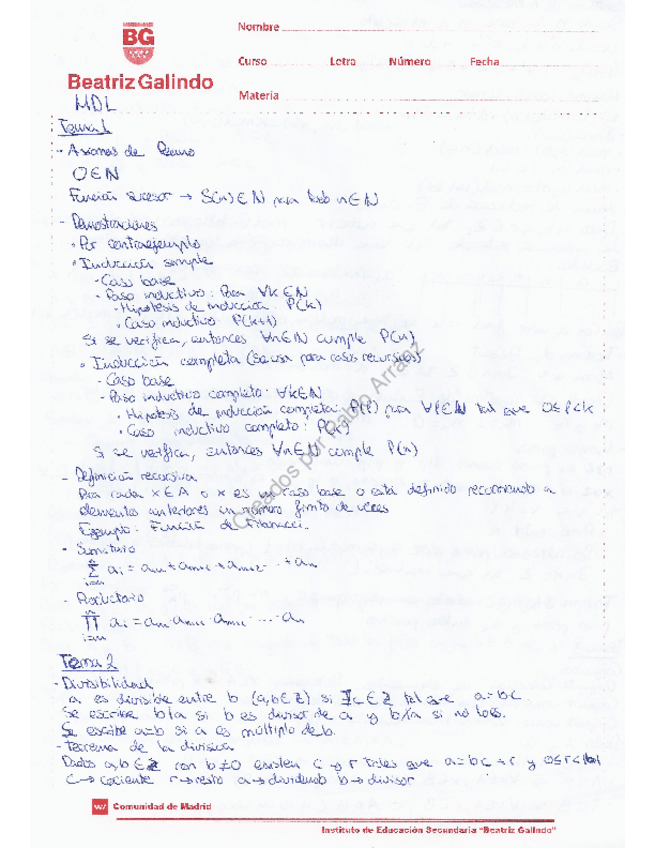 BG
Beatriz Galindo
Nombre
Curso Letra Número Fecha
Materia
MDL
Tema 1
- Axiomas de Peano
0∈ℕ
Función sucesor → S(n)∈ℕ para todo n∈ℕ
- Demostraciones
• Por contraejemplo
• Inducción simple
- Caso base
- Paso inductivo: Para ∀k∈ℕ
• Hipótesis de inducción: P(k)
• Caso inductivo: P(k+1)
Si se verifica, entonces ∀n∈ℕ cumple P(n)
• Inducción completa (se usa para casos recursivos)
- Caso base
- Paso inductivo completo: ∀k∈ℕ
• Hipótesis de inducción completa: P(l) para ∀l∈ℕ tal que 0≤l<k
• Caso inductivo completo: P(k)
Si se verifica, entonces ∀n∈ℕ cumple P(n)
- Definición recursiva
Para cada x∈A o x es un caso base o está definido recurriendo a
elementos anteriores un número finito de veces
Ejemplo: Función de Fibonacci.
- Sumatorio
∑ⁿᵢ₌ₘ aᵢ = aₘ + aₘ₊₁ + aₘ₊₂ ... + aₙ
- Productorio
∏ⁿᵢ₌ₘ aᵢ = aₘ · aₘ₊₁ · aₘ₊₂ · ... · aₙ
Tema 2
- Divisibilidad
a es divisible entre b (a,b∈ℤ) si ∃c∈ℤ tal que a=bc.
Se escribe b|a si b es divisor de a y b∤a si no lo es.
Se escribe a=ḃ si a es múltiplo de b.
- Teorema de la división
Dados a,b∈ℤ con b≠0 existen c y r tales que a=bc+r y 0≤r<|b|
c→ cociente r→ resto a→ dividendo b→ divisor
Creados por Pablo Arraez
Comunidad de Madrid
Instituto de Educación Secundaria "Beatriz Galindo"